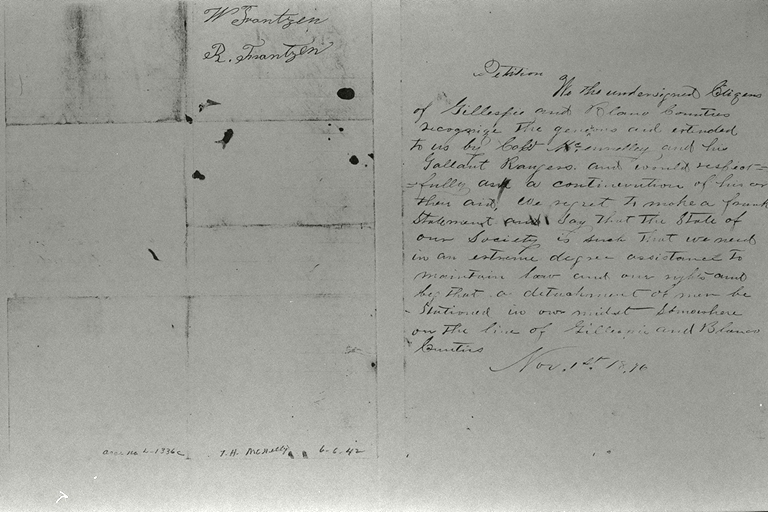 W Frantzen
R. Frantzen
Petition
We the undersigned Citizens
of Gillespie and Blanco Counties
recognize the generous aid extended
to us by Capt McNnelly and his
Gallant Rangers. and would respect=
=fully ask a continuation of his or
their aid, We regret to make a frank
Statement and Say that the State of
our Society is such that we need
in an extreme degree assistance to
maintain law and our rights and
beg that a detachment of men be
Stationed in our midst Somewhere
on the line of Gillespie and Blanco
Counties
Nov. 1st 18
L-1336c T. H. McNelly 6-6-42